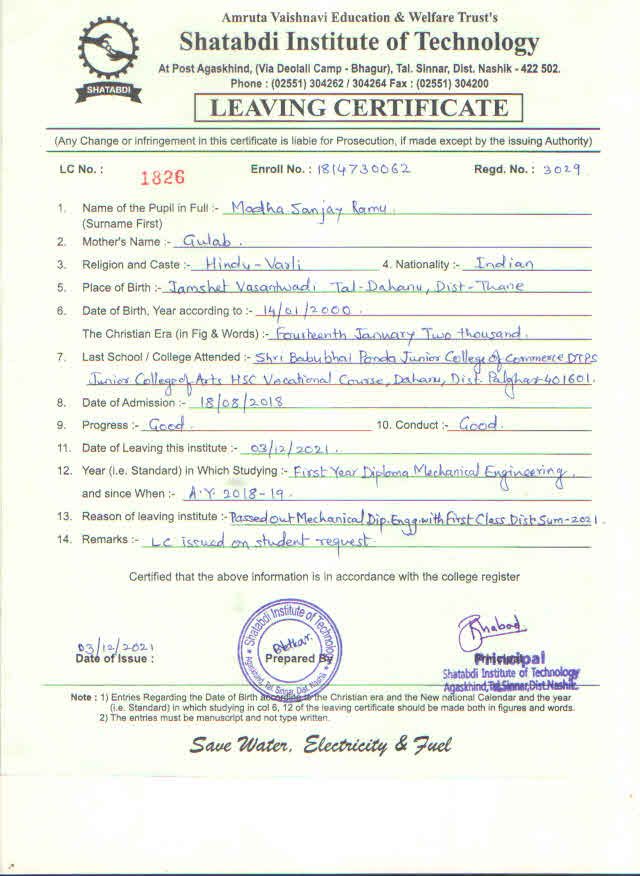 Amruta Vaishnavi Education & Welfare Trust's
Shatabdi Institute of Technology
At Post Agaskhind, (Via Deolali Camp - Bhagur), Tal. Sinnar, Dist. Nashik - 422 502.
Phone : (02551) 304262 / 304264 Fax : (02551) 304200
SHATABDI
LEAVING CERTIFICATE
(Any Change or infringement in this certificate is liable for Prosecution, if made except by the issuing Authority)
LC No. : 1826 Enroll No. : 1814730062 Regd. No. : 3029
1. Name of the Pupil in Full :- Madha Sanjay Ramu.
(Surname First)
2. Mother's Name :- Gulab.
3. Religion and Caste :- Hindu-Varli 4. Nationality :- Indian
5. Place of Birth :- Jamshet Vasantwadi Tal-Dahanu, Dist-Thane
6. Date of Birth, Year according to :- 14/01/2000
The Christian Era (in Fig & Words) :- Fourteenth January Two thousand.
7. Last School / College Attended :- Shri Babubhai Ponda Junior College of Commerce DTPS
Junior College of Arts HSC Vocational Course, Dahanu, Dist. Palghar-401601.
8. Date of Admission :- 18/08/2018
9. Progress :- Good. 10. Conduct :- Good.
11. Date of Leaving this institute :- 03/12/2021.
12. Year (i.e. Standard) in Which Studying :- First Year Diploma Mechanical Engineering.
and since When :- A.Y. 2018-19.
13. Reason of leaving institute :- Passed out Mechanical Dip. Engg. with First Class Dist Sum-2021.
14. Remarks :- LC issued on student request.
Certified that the above information is in accordance with the college register
03/12/2021
Date of Issue :
Shatabdi Institute of Technology
Prepared By
Agaskhind, Tal. Sinnar, Dist. Nashik
Principal
Shatabdi Institute of Technology
Agaskhind, Tal. Sinnar, Dist. Nashik.
Note : 1) Entries Regarding the Date of Birth according to the Christian era and the New national Calendar and the year
(i.e. Standard) in which studying in col 6, 12 of the leaving certificate should be made both in figures and words.
2) The entries must be manuscript and not type written.
Save Water, Electricity & Fuel